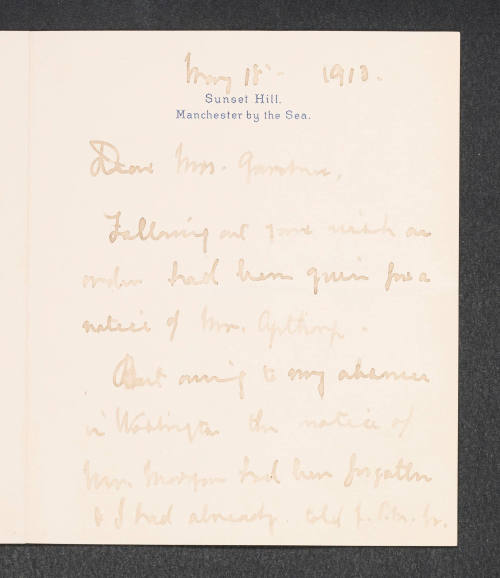 May 18 - 1913.
Sunset Hill,
Manchester by the Sea.
Dear Mrs. Gardner,
Following out your wish an
order had been given for a
notice of Mr. Apthorp.
But owing to my absence
in Washington the notice of
Morgan had been forgotten
& I had already told J. P. M. Jr.